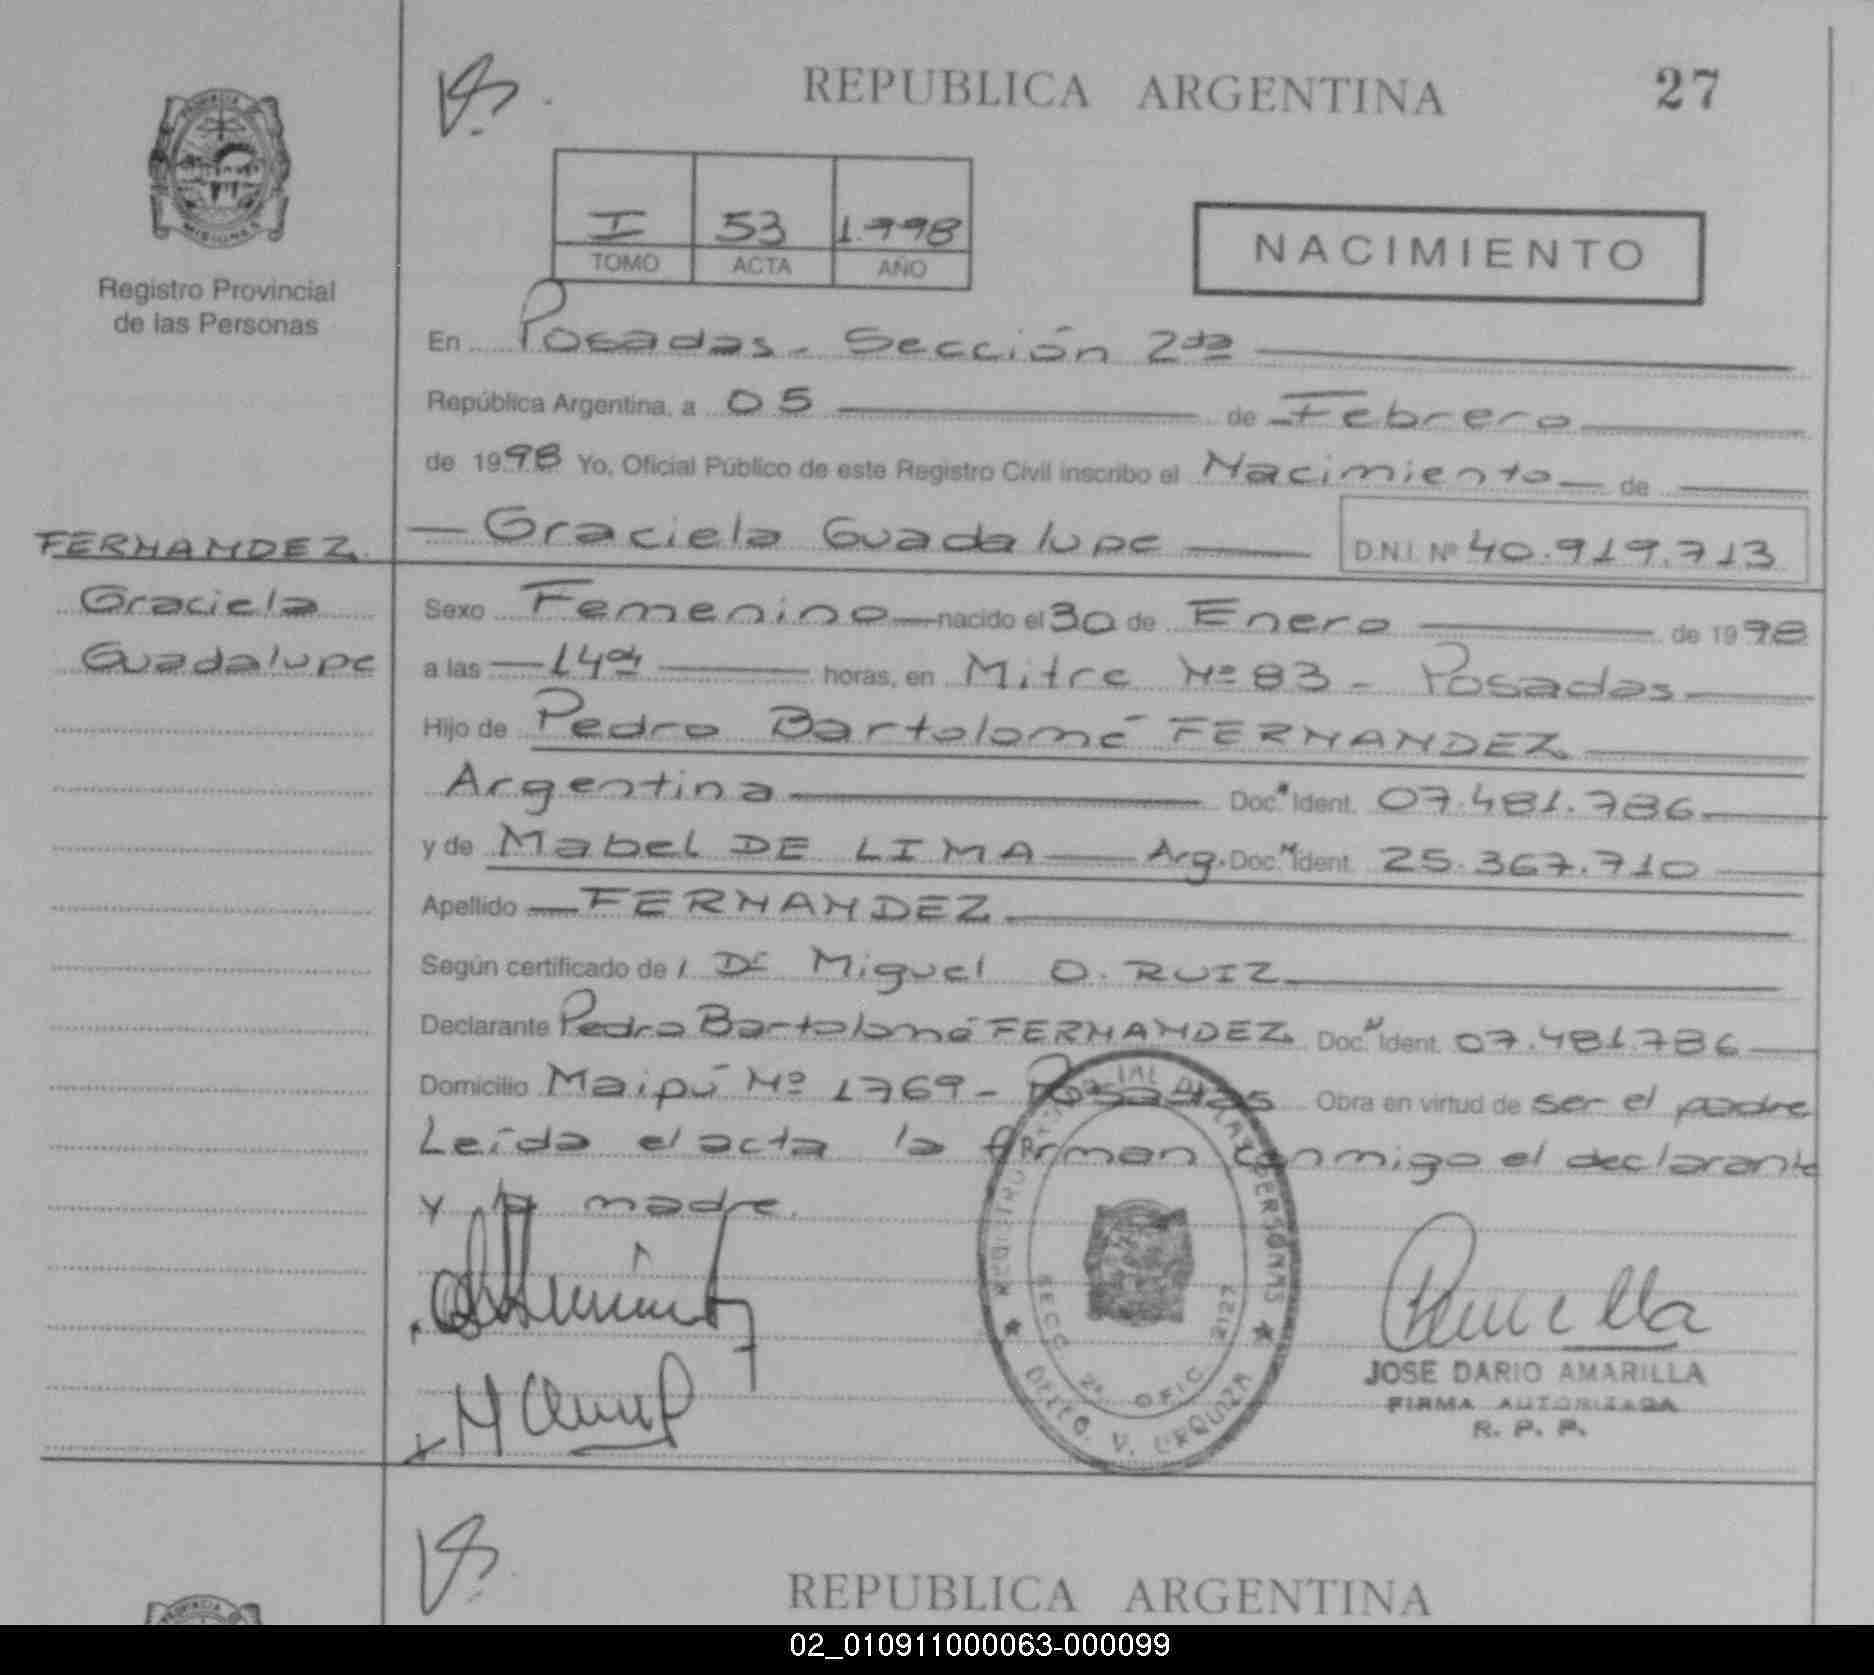 REPUBLICA ARGENTINA
27
PROVINCIA
MISIONES
Registro Provincial
de las Personas
I 53 1.998
TOMO ACTA AÑO
NACIMIENTO
En Posadas - Sección 2da
República Argentina, a 05 de Febrero
de 1998 Yo, Oficial Público de este Registro Civil inscribo el Nacimiento de
FERNANDEZ
Graciela
Guadalupe
Graciela Guadalupe D.N.I. Nº 40.919.713
Sexo Femenino nacido el 30 de Enero de 1998
a las 14 horas, en Mitre Nº 83 - Posadas
Hijo de Pedro Bartolomé FERNANDEZ
Argentina Doc. Ident. 07.481.786
y de Mabel DE LIMA Arg. Doc. Ident. 25.367.710
Apellido FERNANDEZ
Según certificado de Dr Miguel O. RUIZ
Declarante Pedro Bartolomé FERNANDEZ Doc. Ident. 07.481.786
Domicilio Maipú Nº 1769 - Posadas Obra en virtud de ser el padre
Leída el acta la firman conmigo el declarante
y la madre.
SECC 2ª OFIC 2127
DELEG. V. URQUIZA
JOSE DARIO AMARILLA
FIRMA AUTORIZADA
R. P. P.
REPUBLICA ARGENTINA
PROVINCIA
02_010911000063-000099